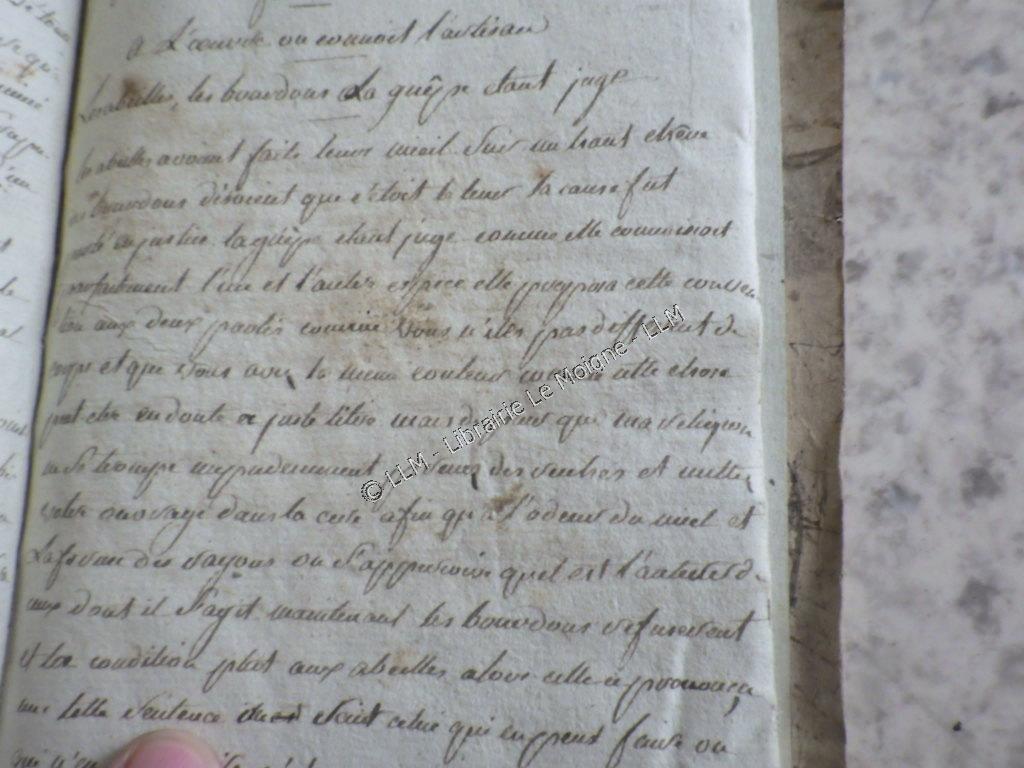 a L'oeuvre on connoit l'artisan
Les abeilles, les bourdons La guêpe etant juge
les abeilles avoient faits leur mieil sur un haut chêne
les bourdons disoient que c'étoit le leur la cause fut
en justice la guêpe etant juge comme elle connoissoit
parfaitement l'une et l'autre espece elle proposa cette condi
tion aux deux partis comme vous n'etes pas different de
corps et que vous avez la meme couleur cette chose
peut etre en doute a juste titre mais de peur que ma religion
ne se trompe imprudemment prenez des ruches et mettez
votre ouvrage dans la cire afin qu'a l'odeur du miel et
la forme des rayons on l'auteur de
ceux dont il s'agit maintenant les bourdons refuserent
et la condition plut aux abeilles alors elle prononca
une telle sentence Soit celui qui en peut faire ou
qui n'en
© LLM - Librairie Le Moigne - LLM